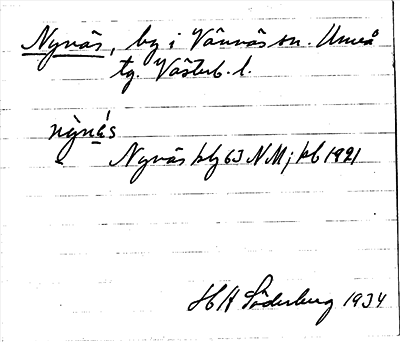 Nynäs, by i Vännäs sn. Umeå
tg. Västerb. l.
nỳnás
Nynäs kbg 63 NM; kb 1821
H H Söderberg 1934